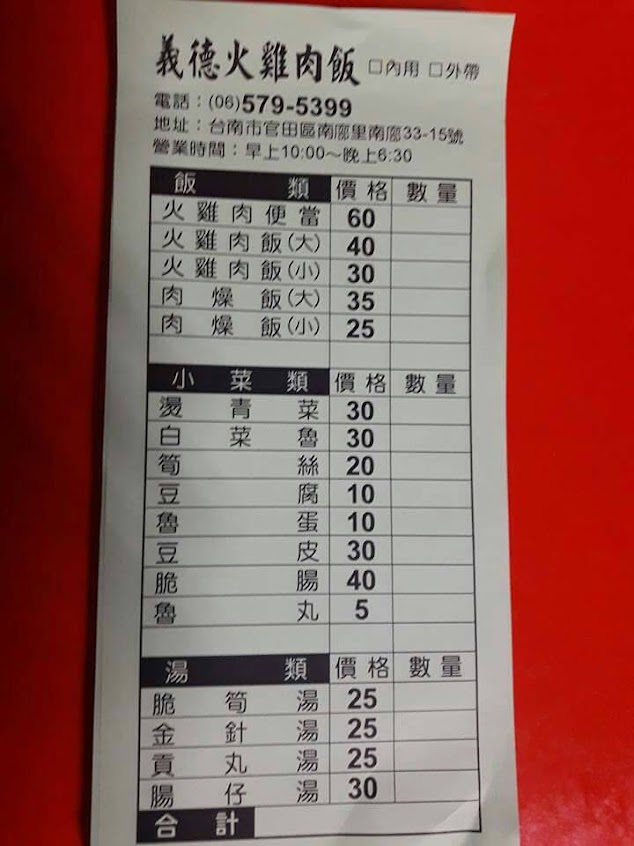 義德火雞肉飯 □內用 □外帶
電話：(06)579-5399
地址：台南市官田區南廍里南廍33-15號
營業時間：早上10:00～晚上6:30
飯類 價格 數量
火雞肉便當 60
火雞肉飯(大) 40
火雞肉飯(小) 30
肉燥飯(大) 35
肉燥飯(小) 25
小菜類 價格 數量
燙青菜 30
白菜魯 30
筍絲 20
豆腐 10
魯蛋 10
豆皮 30
脆腸 40
魯丸 5
湯類 價格 數量
脆筍湯 25
金針湯 25
貢丸湯 25
腸仔湯 30
合計